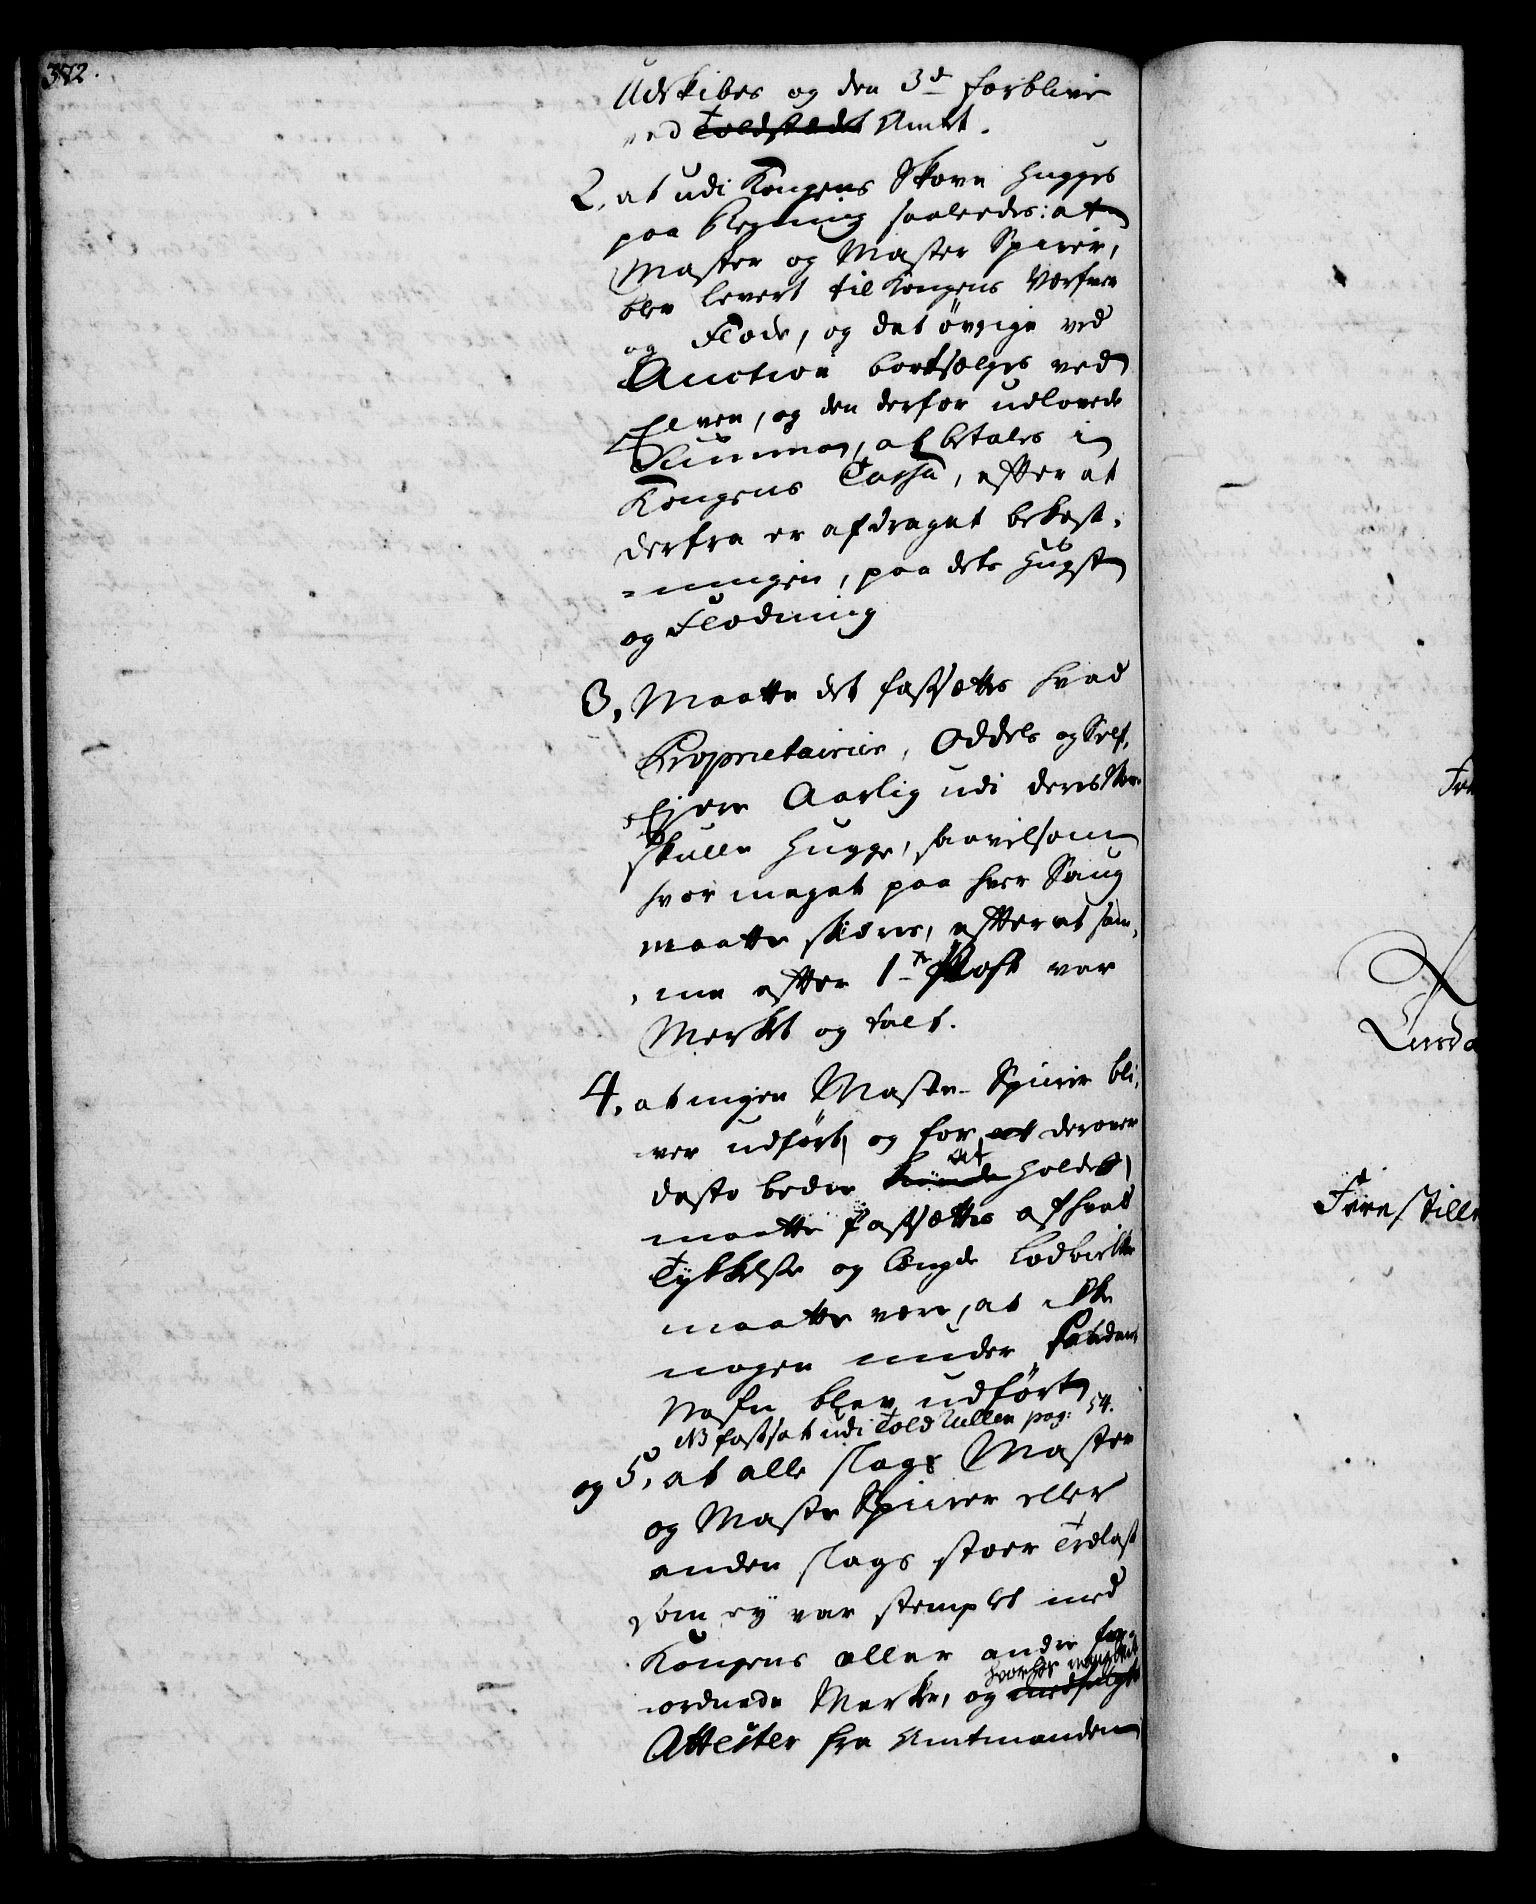 372.
Udskibes og den 3d forblive
ved Toldstedet Amtet.
2, at udi Kongens Skove hugges
paa blegning saaledes: at
Master og Master Spirer,
blev levert til Kongens Verfver
og Flode, og det övrige ved
Auction bortsælges ved
Elven, og den derfor udlovede
Summa, at betales i
Kongens Cassa, efter at
derfra er afdraget bekost-
-ningen, paa dets hugst
og Flodning
3, Maatte det fastsættes hvad
Proprietairer, Oddels og Self-
Ejere Aarlig udi deres Skove
skulle hugge, saavelsom
hvor meget paa hver Saug
maatte skiæres, efter at sam-
-me efter 1te Post var
Merket og talt.
4, at ingen Maste-Spirer bli-
ver udfört, og for at derover
desto bedre kunde at holdes,
maatte fastsættes af hvad
Tykkelse og længde Lodbielker
maatte være, at ikke
nogen under saadant
Nafn blev udfört
NB fastsat udi Told Rullen pag: 54.
og 5, at alle slags Master
og Maste Spirer eller
anden slags stoer Trælast
som ej var stemplet med
Kongens eller andre for-
hvorhos
ordnede Merke, og medfulgte
Attester fra Amtmanden
Fore
Forestille